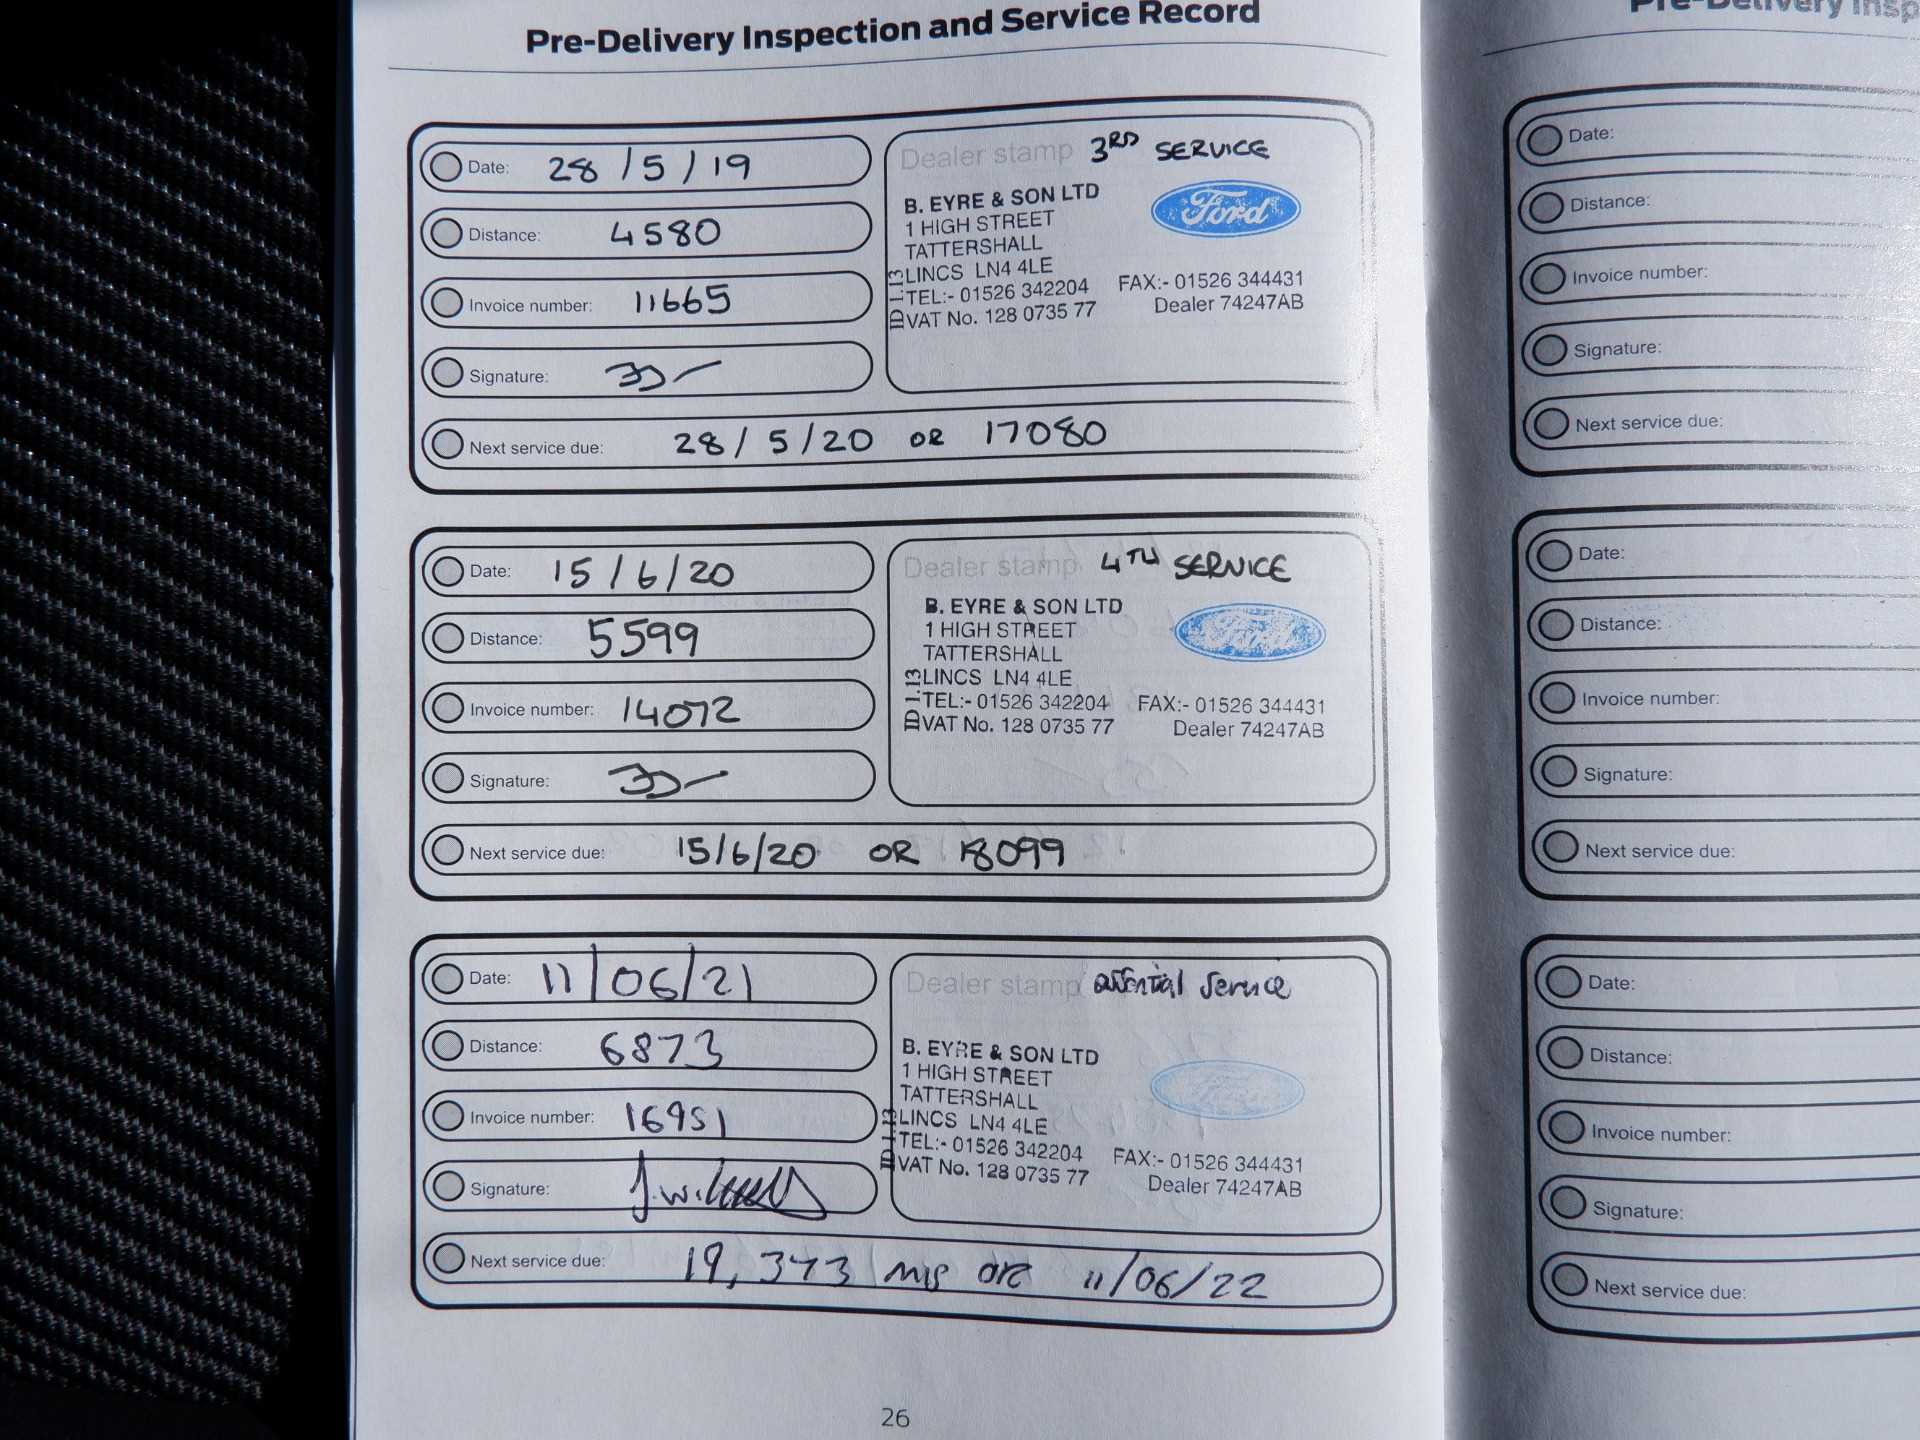 Pre-Delivery Inspection and Service Record
Date: 28/5/19
Distance: 4580
Invoice number: 11665
Signature:
Dealer stamp 3RD SERVICE
B. EYRE & SON LTD
1 HIGH STREET
TATTERSHALL
LINCS LN4 4LE
TEL:- 01526 342204 FAX:- 01526 344431
VAT No. 128 0735 77 Dealer 74247AB
ID 1.13
Ford
Next service due: 28/5/20 OR 17080
Date: 15/6/20
Distance: 5599
Invoice number: 14072
Signature:
Dealer stamp 4TH SERVICE
B. EYRE & SON LTD
1 HIGH STREET
TATTERSHALL
LINCS LN4 4LE
TEL:- 01526 342204 FAX:- 01526 344431
VAT No. 128 0735 77 Dealer 74247AB
ID 1.13
Ford
Next service due: 15/6/20 OR 18099
Date: 11/06/21
Distance: 6873
Invoice number: 16951
Signature:
Dealer stamp essential service
B. EYRE & SON LTD
1 HIGH STREET
TATTERSHALL
LINCS LN4 4LE
TEL:- 01526 342204 FAX:- 01526 344431
VAT No. 128 0735 77 Dealer 74247AB
ID 1.13
Ford
Next service due: 19,373 mls or 11/06/22
26
Pre-Delivery
Date:
Distance:
Invoice number:
Signature:
Next service due:
Date:
Distance:
Invoice number:
Signature:
Next service due:
Date:
Distance:
Invoice number:
Signature:
Next service due: